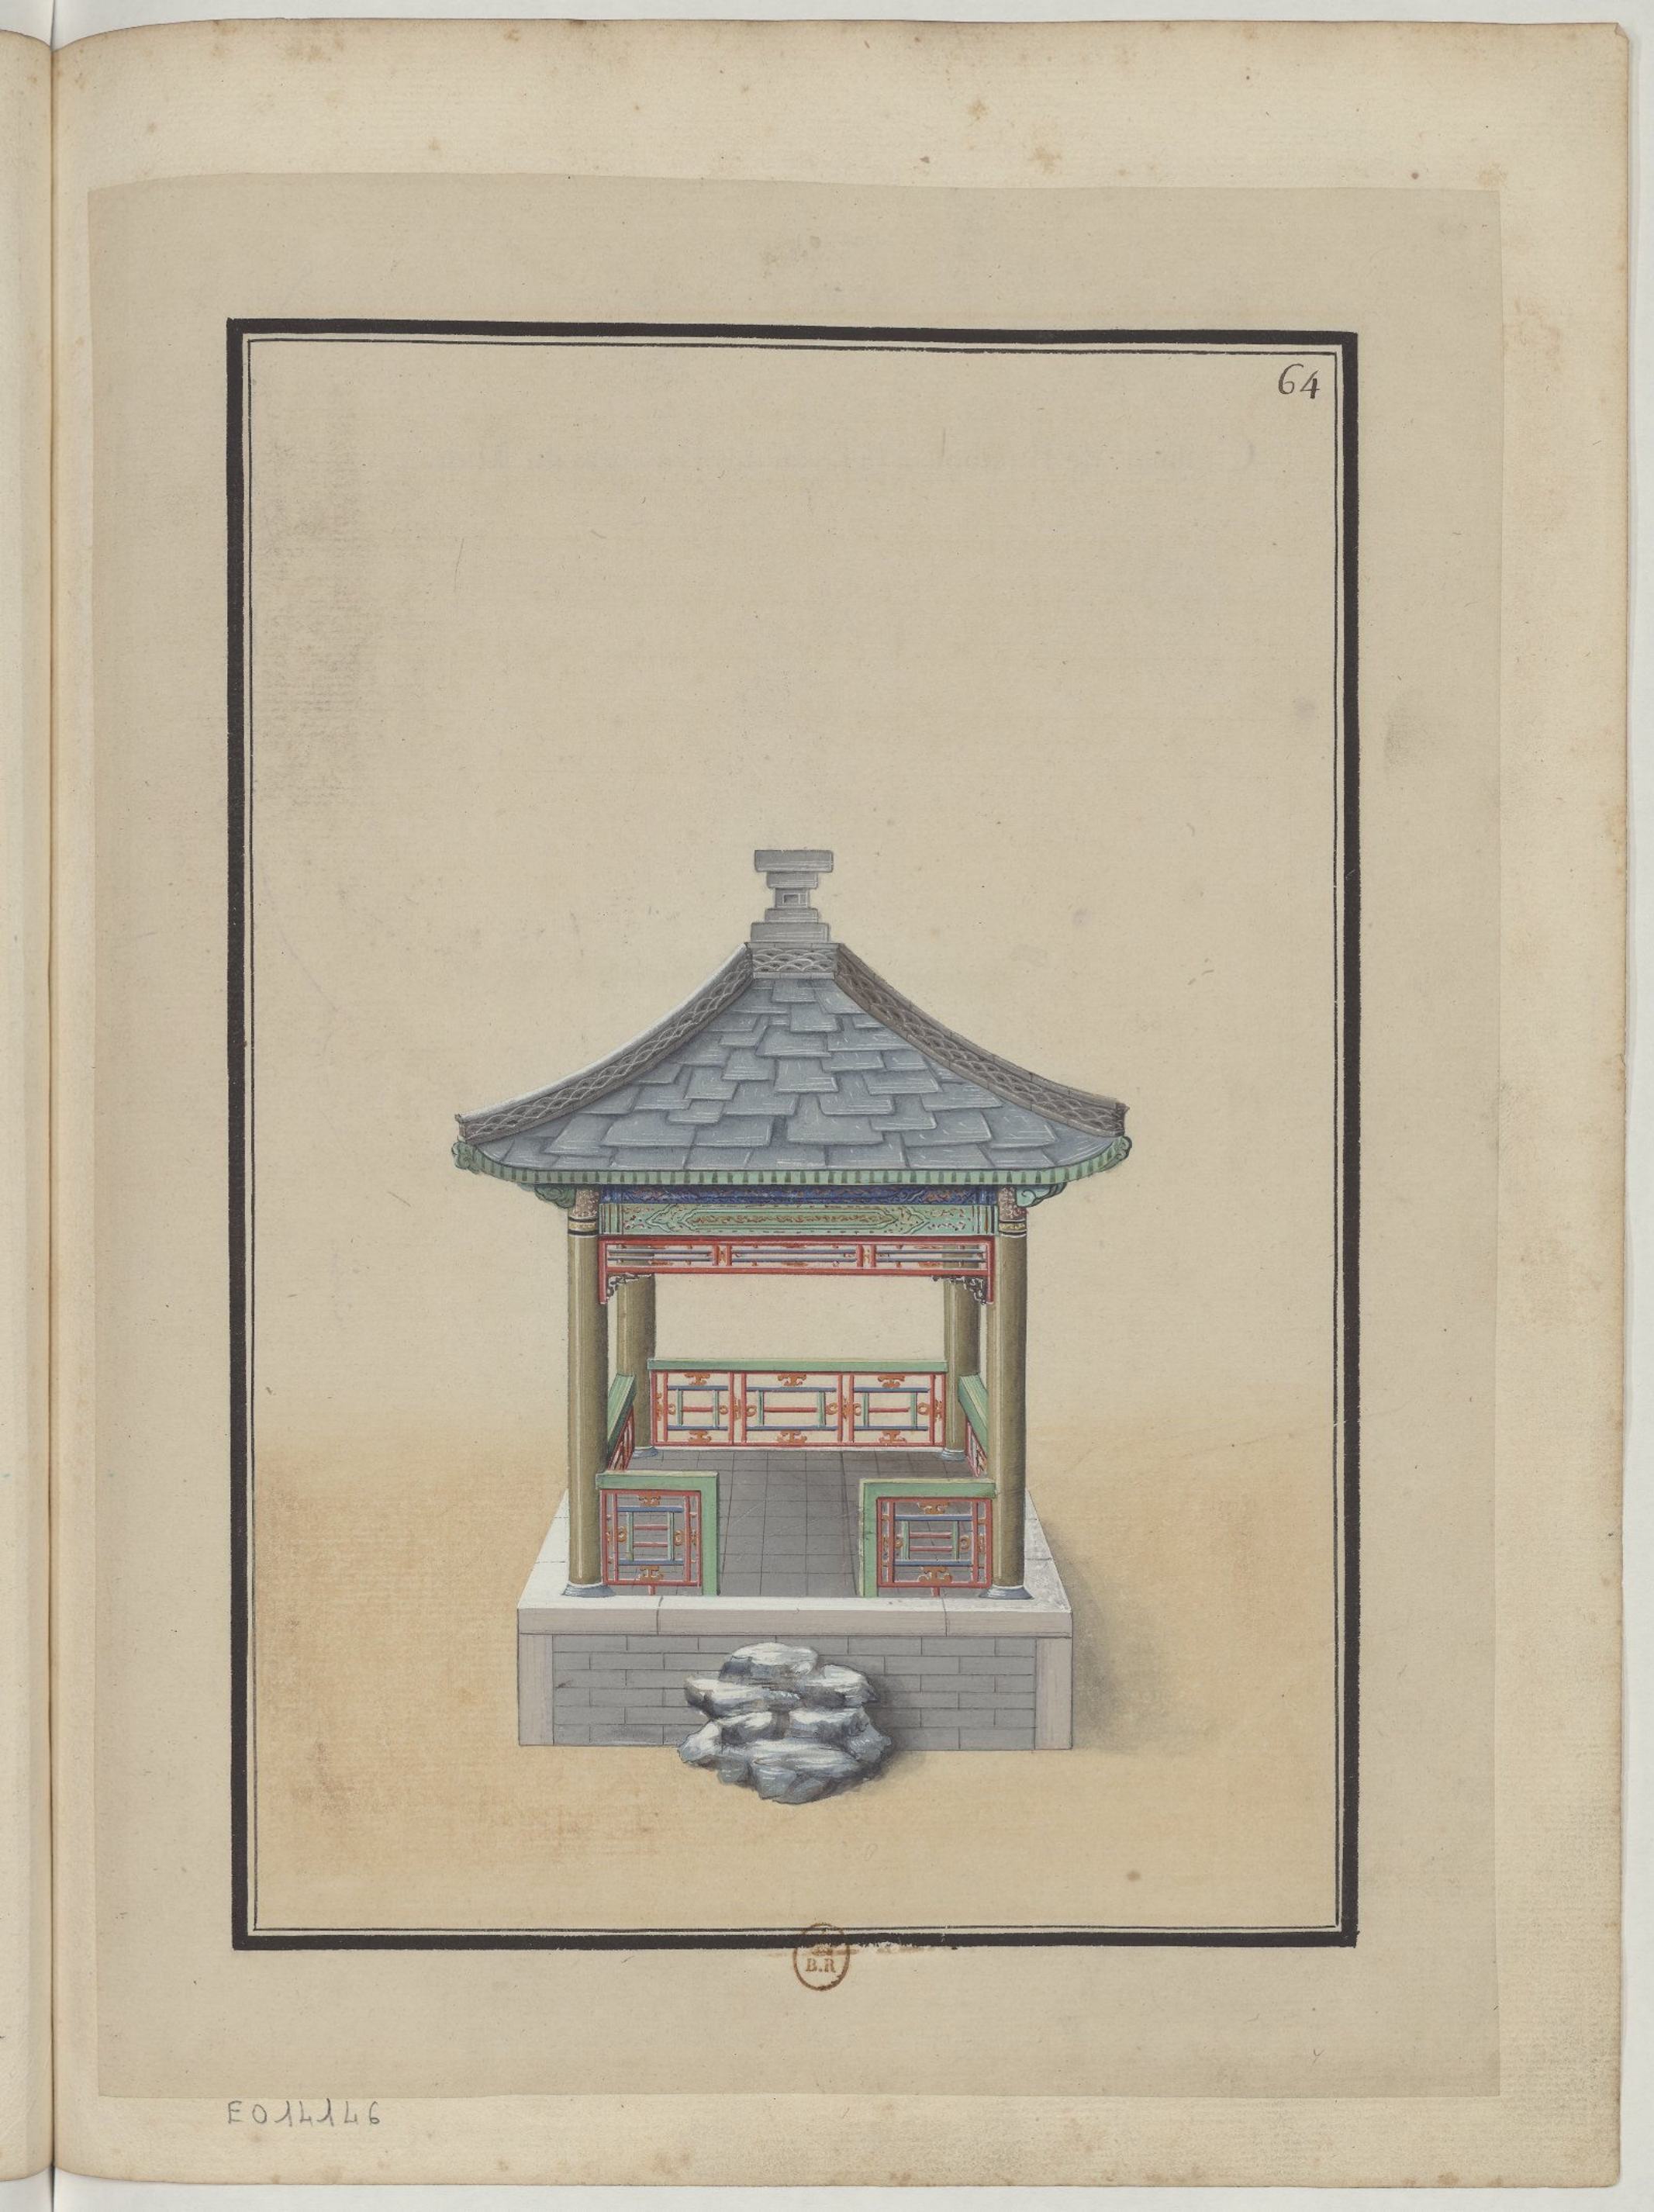 64
B.R
E014146